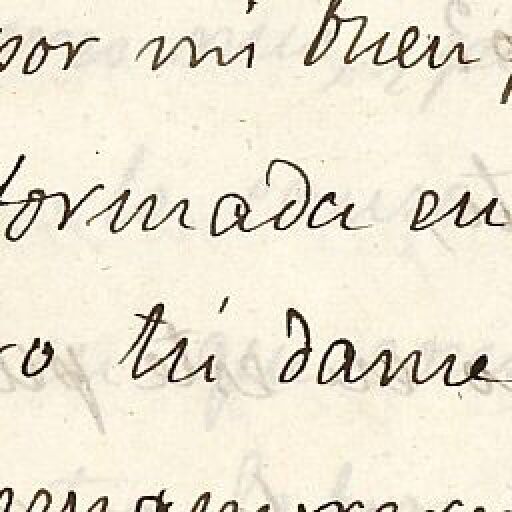 por mi buen
formada en
ro tú dame